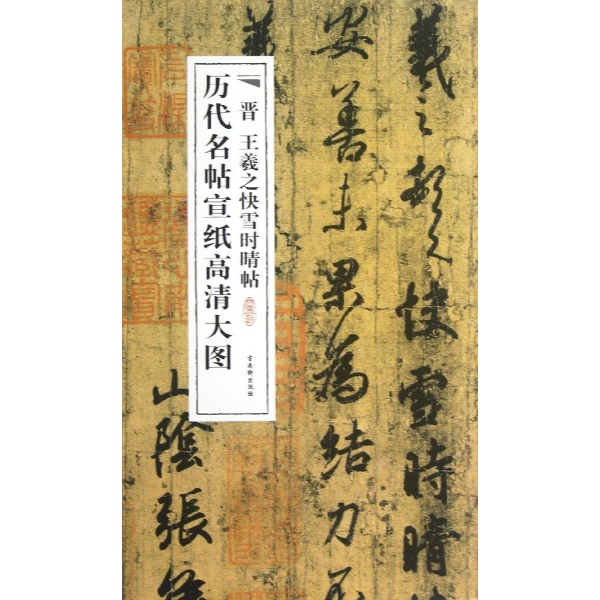 羲之頓首快雪時晴
安善未果為結力不
山陰張侯
晋 王羲之快雪时晴帖
历代名帖宣纸高清大图